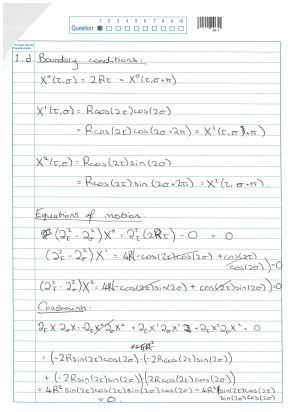 1 2 3 4 5 6 7 8 9 10
Question:
1.d Boundary conditions:
X⁰(τ,σ) = 2Rτ = X⁰(τ,σ+π)
X¹(τ,σ) = Rcos(2τ)cos(2σ)
= Rcos(2τ)cos(2σ+2π) = X¹(τ,σ+π)
X²(τ,σ) = Rcos(2τ)sin(2σ)
= Rcos(2τ)sin(2σ+2π) = X²(τ,σ+π).
Equations of motion:
(∂τ² - ∂σ²)X⁰ = ∂τ²(2Rτ) - 0 = 0
(∂τ² - ∂σ²)X¹ = 4R(-cos(2τ)cos(2σ) + cos(2τ)
cos(2σ))=0
(∂τ² - ∂σ²)X² = 4R(-cos(2τ)sin(2σ) + cos(2τ)sin(2σ))=0
Constraints:
∂τX·∂σX = -∂τX⁰∂σX⁰ + ∂τX¹∂σX¹ + ∂τX²∂σX² = 0
= (-2Rsin(2τ)cos(2σ)·(-2Rcos(2τ)sin(2σ))
+ (-2Rsin(2τ)sin(2σ))(2Rcos(2τ)cos(2σ))
= 4R²sin(2τ)cos(2τ)sin(2σ)cos(2σ) - 4R²sin(2τ)cos(2τ)
sin(2σ)cos(2σ)
= 0.